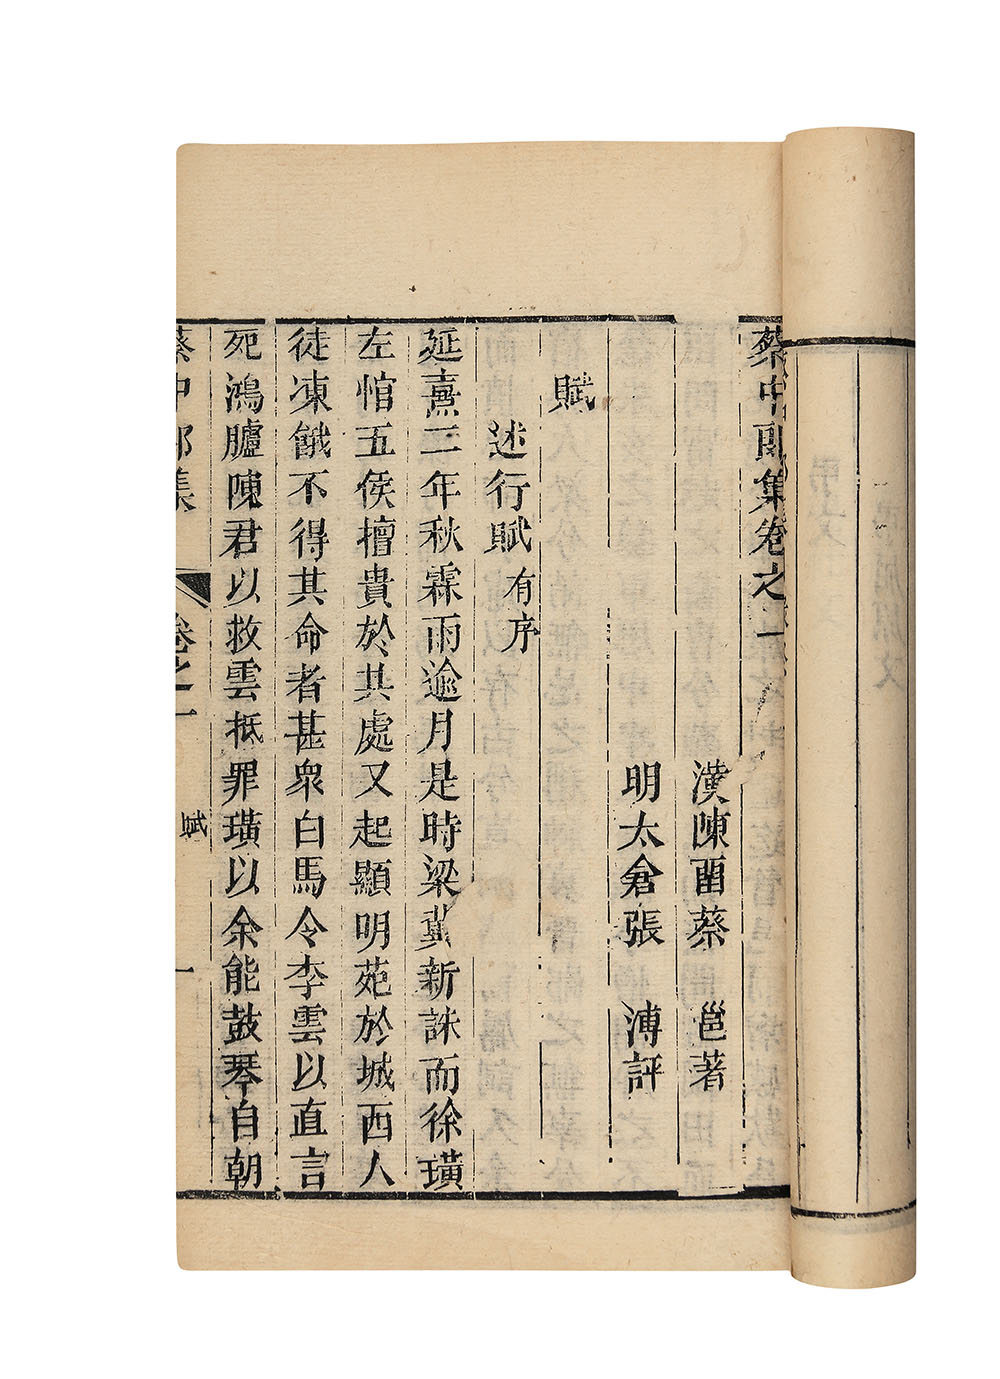 蔡中郎集卷之一
漢陳畱蔡　邕著
明太倉張　溥評
賦
述行賦有序
延熹二年秋霖雨逾月是時梁冀新誅而徐璜
左悺五侯擅貴於其處又起顯明苑於城西人
徒凍餓不得其命者甚眾白馬令李雲以直言
死鴻臚陳君以救雲抵罪璜以余能鼓琴自朝
蔡中郎集　卷之一　賦　一